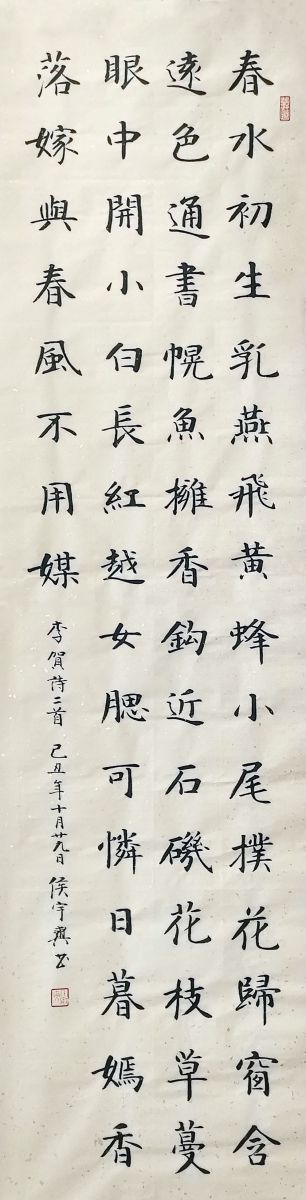 春水初生乳燕飛黃蜂小尾撲花歸窗含
遠色通書幌魚擁香鈎近石磯花枝草蔓
眼中開小白長紅越女腮可憐日暮嫣香
落嫁與春風不用媒
李賀詩二首 己丑年十月廿九日 侯宇书